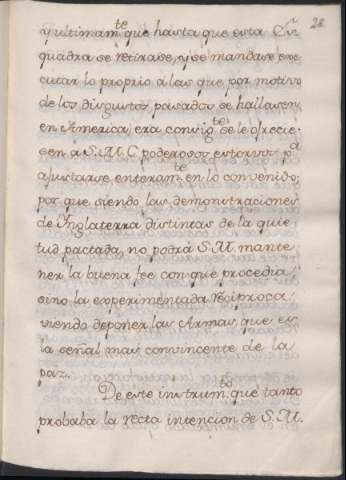 28
y ultimam.te que hasta que esta Es-
quadra se retirase, y se mandase exe-
cutar lo proprio à las que por motivo
de los disgustos pasados se hallasen
en America, era consig.te se le ofrecie-
sen à S.M.C. poderosos estorvos p.a
ajustarse enteram.te en lo convenido;
por que siendo las demonstraciones
de Ynglaterra distintas de la quie-
tud pactada, no podrà S.M. mante-
ner la buena fee con que procedia,
sino la experimentada reciproca,
viendo deponer las Armas, que es
la señal mas convincente de la
paz.
De este instrum.to que tanto
probaba la recta intencion de S.M.